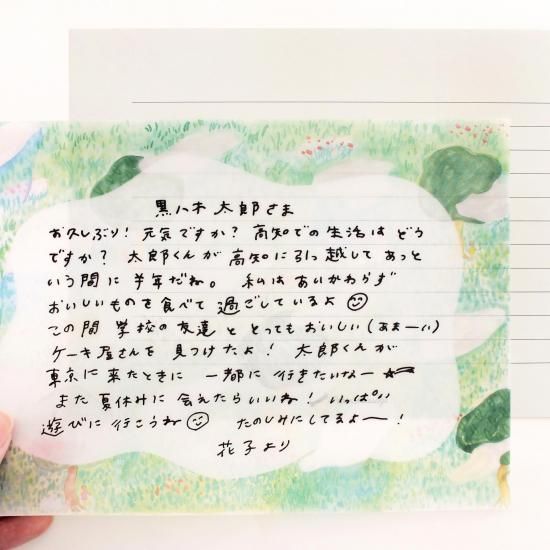 黒八木 太郎さま
お久しぶり! 元気ですか? 高知での生活はどう
ですか? 太郎くんが高知に引っ越してあっと
いう間に半年だね。 私はあいかわらず
おいしいものを食べて過ごしているよ☺
この間 学校の友達ととってもおいしい(あまーい)
ケーキ屋さんを見つけたよ! 太郎くんが
東京に来たときに 一都に行きたいなー★
また夏休みに会えたらいいね! いっぱい
遊びに行こうね☺ たのしみにしてるよー!
花子より